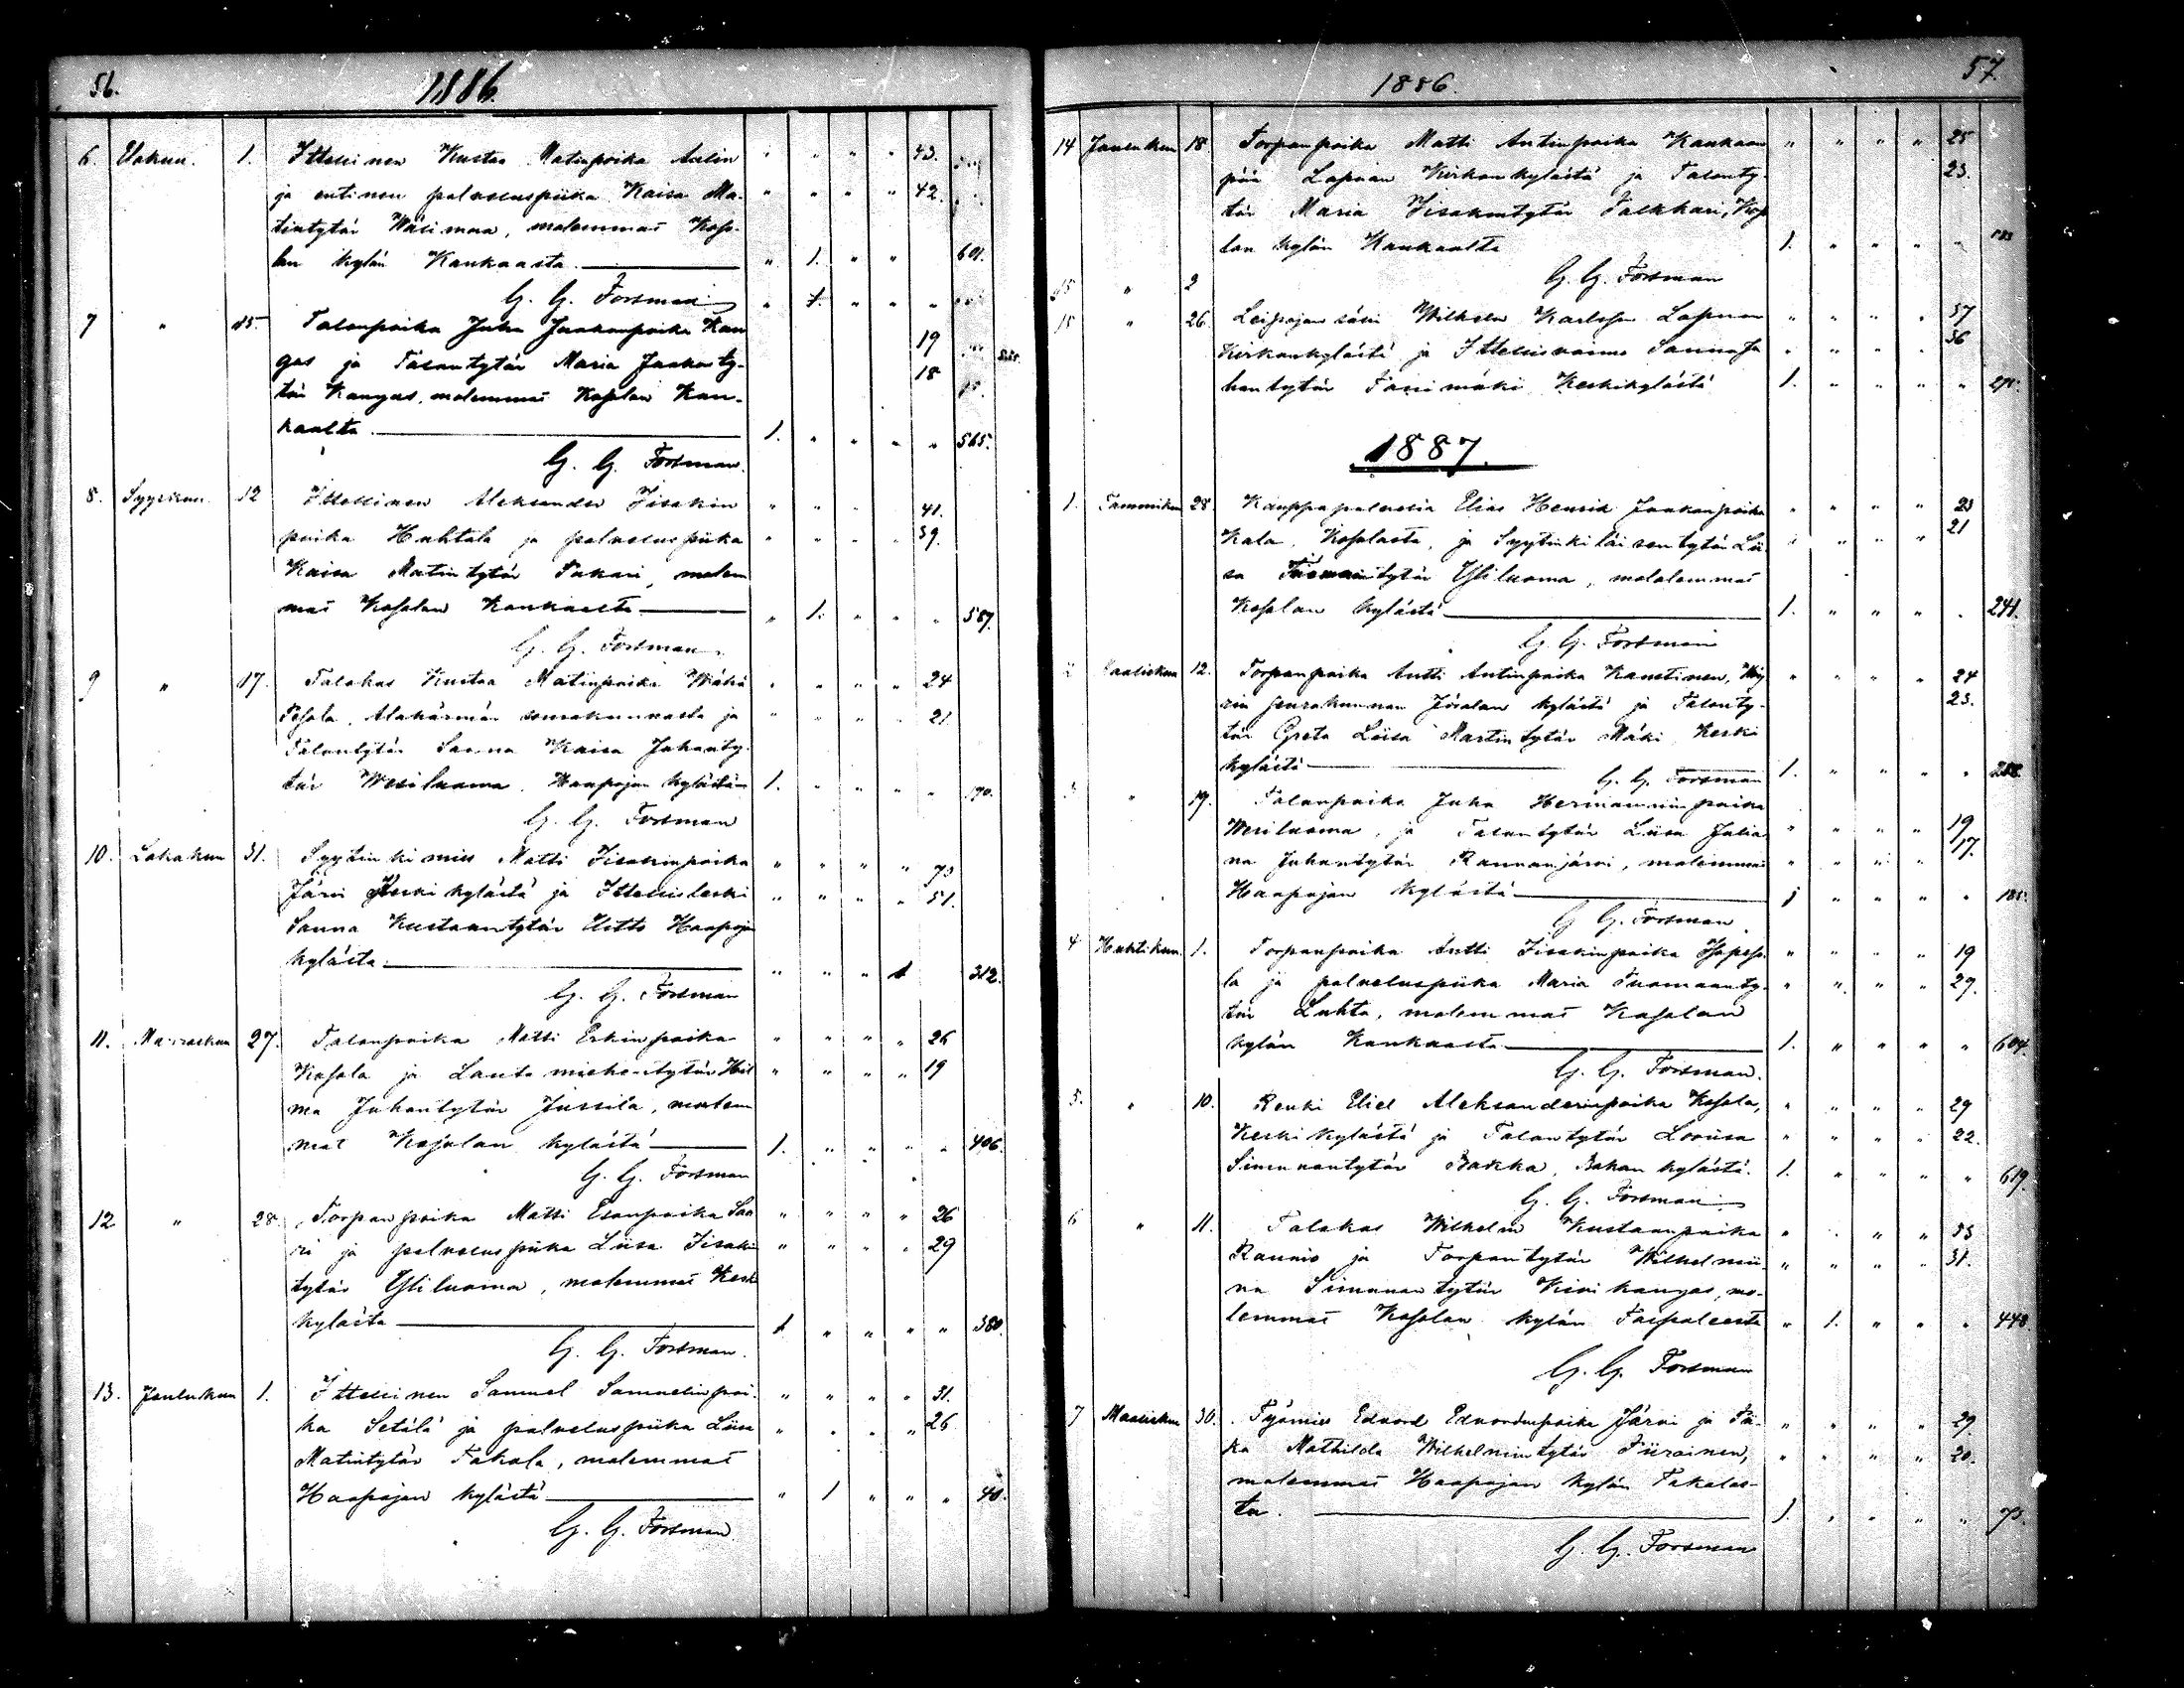 56.
1886.
6. Elokuu. 1. Ittellinen Kustaa Matinpoika 43.
ja entinen palveluspiika Kaisa Ma- " " " " 42.
tintytär Wälimaa, molemmat Koso-
lan kylän Kankaasta. " 1. " " 601.
G. G. Forsman
7 " 15. Talonpoika Juha Jaakonpoika Kan 19
gas ja Talontytär Maria Jaakonty- 18
tär Kangas, molemmat Kosolan Kan-
kaalta 1. " " " " 565.
G. G. Forsman.
8. Syyskuu 12 Ittellinen Aleksander Iisakin 41.
poika Huhtala ja palveluspiika 39.
Kaisa Matintytär Takari, molem
mat Kosolan Kankaalta " 1. " " " 587.
G. G. Forsman.
9 " 17. Talokas Kustaa Matinpoika Wähä 24
Pesola, Alahärmän seurakunnasta ja 21
Talontytär Sanna Kaisa Juhanty-
tär Wesiluoma, Haapojan kylästä 1. " " " " 190.
G. G. Forsman
10. Lokakuu 31. Syytinkimies Matti Iisakinpoika " " " " 73
Järvi Keskikylästä ja Ittellisleski " " " " 51.
Sanna Kustaantytär Hitto Haapoja
kylästä. " " " 1 312.
G. G. Forsman
11. Marraskuu 27. Talonpoika Matti Erkinpoika " " " " 26
Kosola ja Lautamiehentytär Hil " " " " 19
ma Juhantytär Jussila, molem
mat Kosolan kylästä 1. " " " " 406.
G. G. Forsman
12 " 28. Torpanpoika Matti Esanpoika Saa " " " " 26
ri ja palveluspiika Liisa Iisakin " " " " 29
tytär Yliluoma, molemmat Keski
kylästä 1 " " " " 380.
G. G. Forsman.
13. Joulukuu 1. Ittellinen Samuel Samuelinpoi- " " " " 31.
ka Setälä ja palveluspiika Liisa " " " " 26
Matintytär Takala, molemmat
Haapojan kylästä " 1 " " " 40.
G. G. Forsman
57.
1886.
14 Joulukuu 18. Torpanpoika Matti Antinpoika Kankaan " " " " 25
pää Lapuan Kirkonkylästä ja Talonty- 23.
tär Maria Iisakintytär Talkkari, Koso
lan kylän Kankaalta 1. " " " "
G. G. Forsman
15 " 2
15 " 26. Leipojan sälli Wilhelm Karlsson Lapuan " " " " 37
Kirkonkylästä ja Ittellisvaimo Sanna Ju " " " " 36
hantytär Passimäki Keskikylästä 1. " " " "
1887.
1. Tammikuu 28 Kauppapalvelia Elias Henrik Jaakonpoika " " " " 23
Kala, Kosolasta, ja Syytinkiläisentytär Lii " " " " 21
sa Tuomaantytär Yliluoma, mololemmat
Kosolan kylästä 1. " " " " 241.
G. G. Forsman
2 Maaliskuu 12. Torpanpoika Antti Antinpoika Kanstinen, Köy " " " " 24
rin seurakunnan kylästä ja Talonty- 23.
tär Greta Liisa Martintytär Mäki Keski
kylästä 1. " " " "
G. G. Forsman
3 " 19. Talonpoika Juha Hermanninpoika
Wesiluoma, ja Talontytär Liisa Julia " " " " 19
na Juhantytär Rannanjärvi, molemmat " " " " 17.
Haapojan kylästä 1 " " " " 185.
G. G. Forsman
4 Huhtikuu. 1. Torpanpoika Antti Iisakinpoika " " " " 19
la ja palveluspiika Maria Tuomaanty- " " " " 29.
tär Luhta, molemmat Kosolan
kylän Kankaasta 1. " " " " 604.
G. G. Forsman.
5. " 10. Renki Eliel Aleksanderinpoika Kosola, " " " " 29
Keskikylästä ja Talontytär Loviisa " " " " 22.
Simunantytär Pakka, Pakan kylästä. 1. " " " " 619.
G. G. Forsman
6 " 11. Talokas Wilhelm Kustaanpoika " " " " 33
Raunio ja Torpantytär Wilhelmii- " " " " 31.
na Simunantytär Kivikangas, mo-
lemmat Kosolan kylän Taipaleesta " 1. " " " 448.
G. G. Forsman
7 Maaliskuu 30. Työmies Edvard Edvardinpoika Järvi ja Pii- " " " " 29.
ka Mathilda Wilhelmintytär Piirainen, " " " " 20.
molemmat Haapojan kylän Takalas-
ta. 1. " " " " 73.
G. G. Forsman